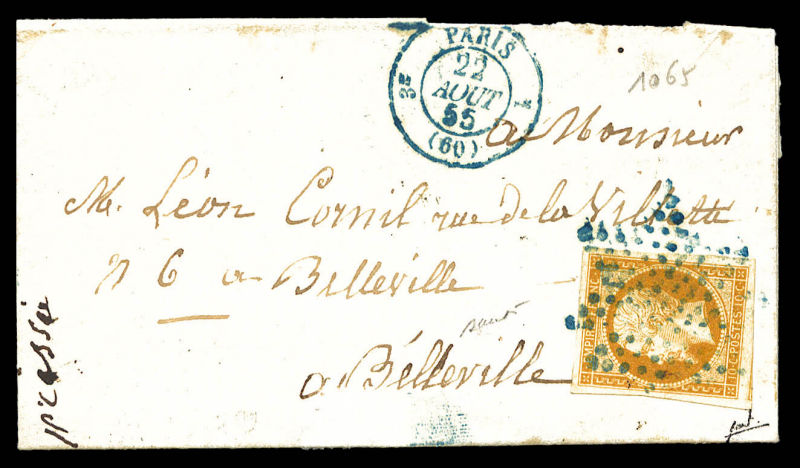 PARIS
3E
22
AOUT
55
(60)
1065
a Monsieur
M. Léon Cornil rue de la Villette
n 6 a Belleville
a Bélleville
pressée
EMPIRE FRANC
10·C·POSTES·10·C